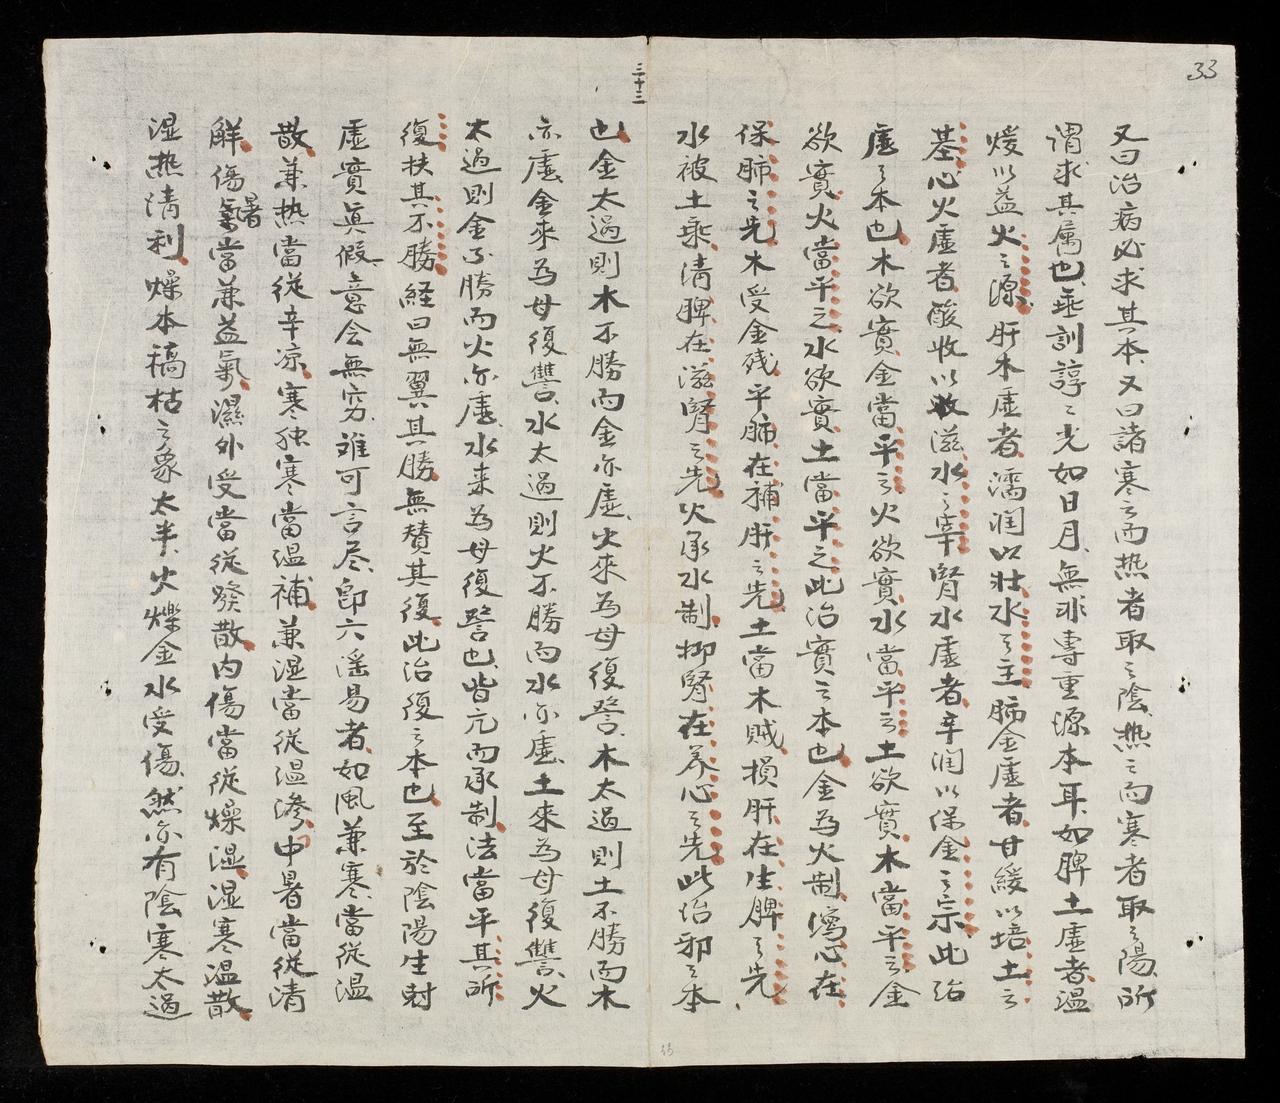 33
又曰治病必求其本又曰諸寒之而热者取之陰热之而寒者取之陽所
謂求其属也垂訓諄々光如日月無非專重源本耳如脾土虛者温
煖以益火之源肝木虛者濡润以壮水之主肺金虛者甘緩以培土之
基心火虛者酸收以收滋水之宰腎水虛者辛润以保金之宗此治
虛之本也木欲實金當平之火欲實水當平之土欲實木當平之金
欲實火當平之水欲實土當平之此治實之本也金為火制瀉心在
保肺之先木受金残平肺在補肝之先土當木贼損肝在生脾之先
水被土乘清脾在滋腎之先火承水制抑腎在养心之先此治邪之本
三十三
也金太過則木不勝而金亦虛火來為母復讐木太過則土不勝而木
亦虛金來為母復讐水太過則火不勝而水亦虛土來為母復讐火
太過則金不勝而火亦虛水来為母復讐也皆亢而承制法當平其所
復扶其不勝経曰無翼其勝無賛其復此治復之本也至於陰陽生尅
虛實真假意会無穷难可言尽即六淫易者如風兼寒當從温
散兼热當從辛凉寒独寒當温補兼湿當從温滲中暑當從清
解傷暑氣當兼益氣濕外受當從發散内傷當從燥湿湿寒温散
湿热清利燥本稿枯之象太半火爍金水受傷然亦有陰寒太過